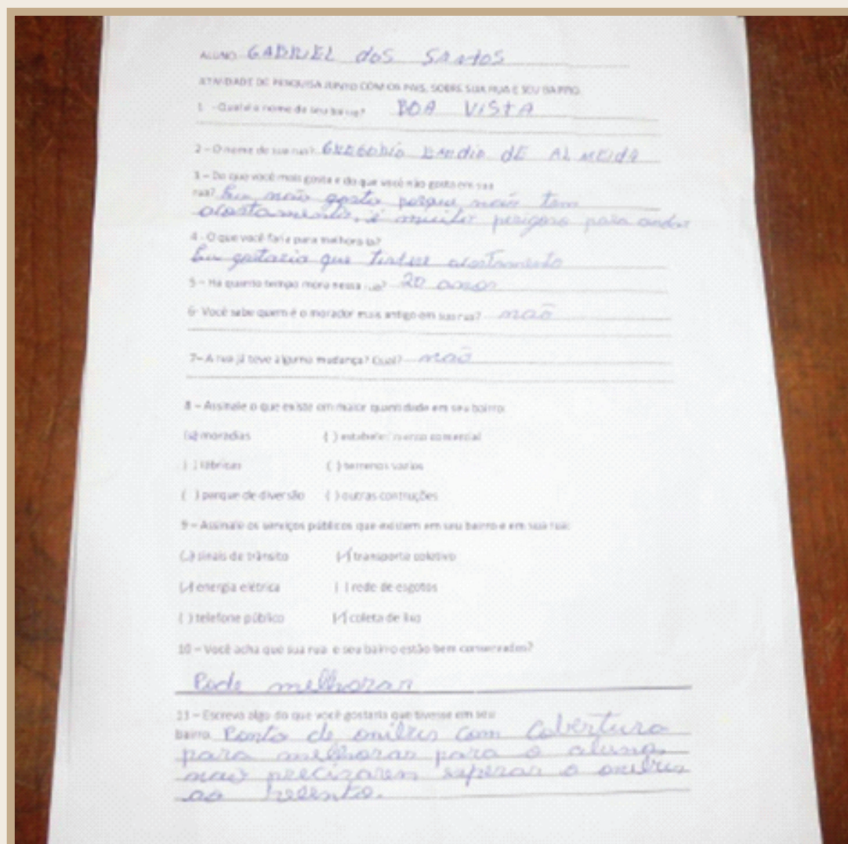 ALUNO GABRIEL dos SANTOS
ATIVIDADE DE PESQUISA JUNTO COM OS PAIS, SOBRE SUA RUA E SEU BAIRRO
1 - Qual é o nome do seu bairro? BOA VISTA
2 - O nome de sua rua? DE ALMEIDA
3 - Do que você mais gosta e do que você não gosta em sua
rua? Eu não gosto porque não tem
acostamento, é muito perigoso para andar
4 - O que você faria para melhora-la?
Eu gostaria que tivesse acostamento
5 - Há quanto tempo mora nessa rua? 20 anos
6- Você sabe quem é o morador mais antigo em sua rua? não
7- A rua já teve alguma mudança? Qual? não
8 - Assinale o que existe em maior quantidade em seu bairro:
(x) moradias ( ) comercial
( ) fábricas ( ) terrenos vazios
( ) parque de diversão ( ) outras contruções
9 - Assinale os serviços públicos que existem em seu bairro e em sua rua:
( ) sinais de trânsito (/) transporte coletivo
(/) energia elétrica ( ) rede de esgotos
( ) telefone público (/) coleta de lixo
10 - Você acha que sua rua e seu bairro estão bem conservados?
Pode melhorar
11 - Escreva algo do que você gostaria que tivesse em seu
bairro. Ponto de onibus com cobertura
para melhorar para o aluno
não precizarem esperar o onibus
ao relento.